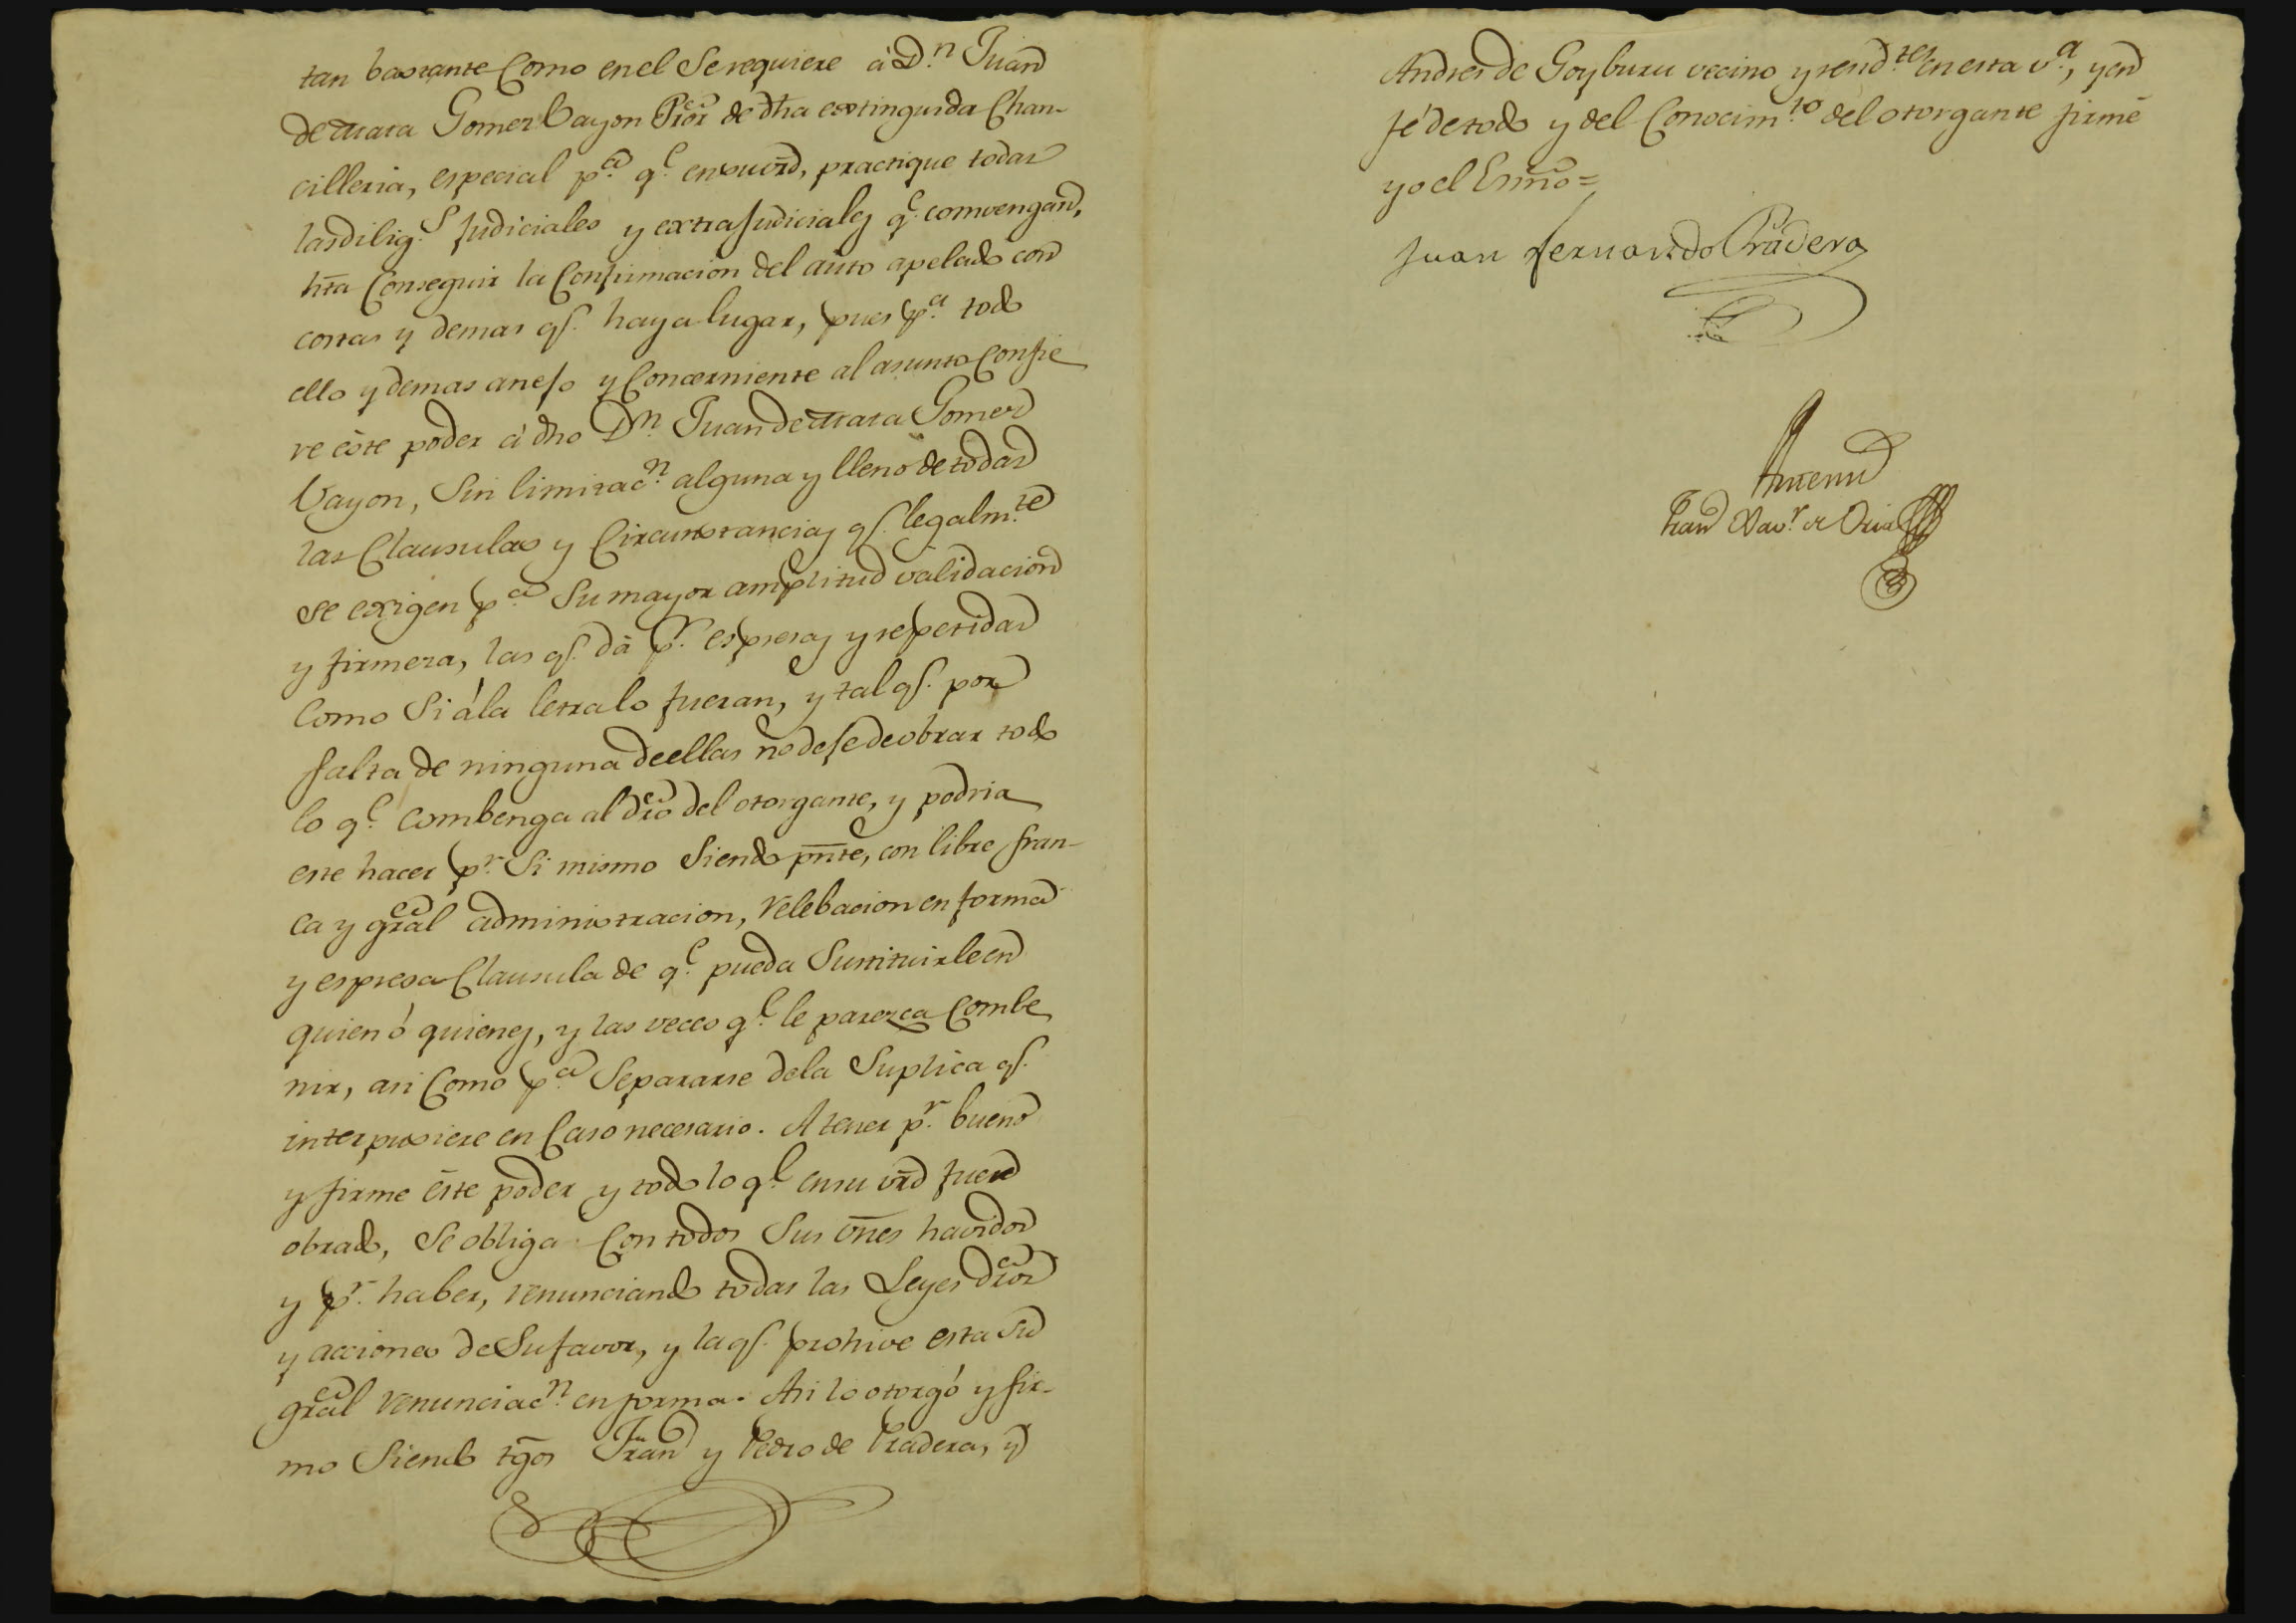 tan bastante Como en el Se requiere à D.n Juan
de Mata Gomez Bayon Pror de dha extinguida Chan-
cilleria, especial p.a q.e en su vrd, practique todas
las dilig.s Judiciales y extraJudiciales q.e comvengan,
hta Conseguir la Confirmacion del auto apelado con
costas y demas q.e haya lugar, pues p.a todo
ello y demas anejo y Concerniente al asunto Confie
re éste poder à dho D.n Juan de Mata Gomez
Bayon, Sin limitac.n alguna y lleno de todas
las Clausulas y Circunstancias q.e legalm.te
se exigen p.a Su mayor amplitud validacion
y firmeza, las q.e dà p.r espresas y repetidas
Como Si á la letra lo fueran, y tal q.e por
falta de ninguna de ellas no deje de obrar todo
lo q.e combenga al dro del otorgante, y podria
este hacer p.r Si mismo Siendo pnte, con libre fran-
ca y gral administracion, relebacion en forma
y espresa Clausula de q.e pueda Sustituirle en
quien ó quienes, y las veces q.e le parezca Combe
nir, asi Como p.a Separarse de la Suplica q.e
interpusiere en Caso necesario. A tener p.r bueno
y firme éste poder y todo lo q.e en su vrd fuere
obrado, Se obliga Con todos Sus vnes havidos
y p.r haber, renunciando todas las Leyes dros
y acciones de Su favor, y la q.e prohive esta su
gral renunciac.n en forma. Asi lo otorgó y fir-
mo Siendo tgos Fran y Pedro de Pradera, y
Andres de Goyburu vecino y resid.tes en esta v.a, y en
fé de todo y del Conocim.to del otorgante firmé
yo el Esnno=
Juan Fernando Pradera
Antemi
Fran Xav.r de Oria